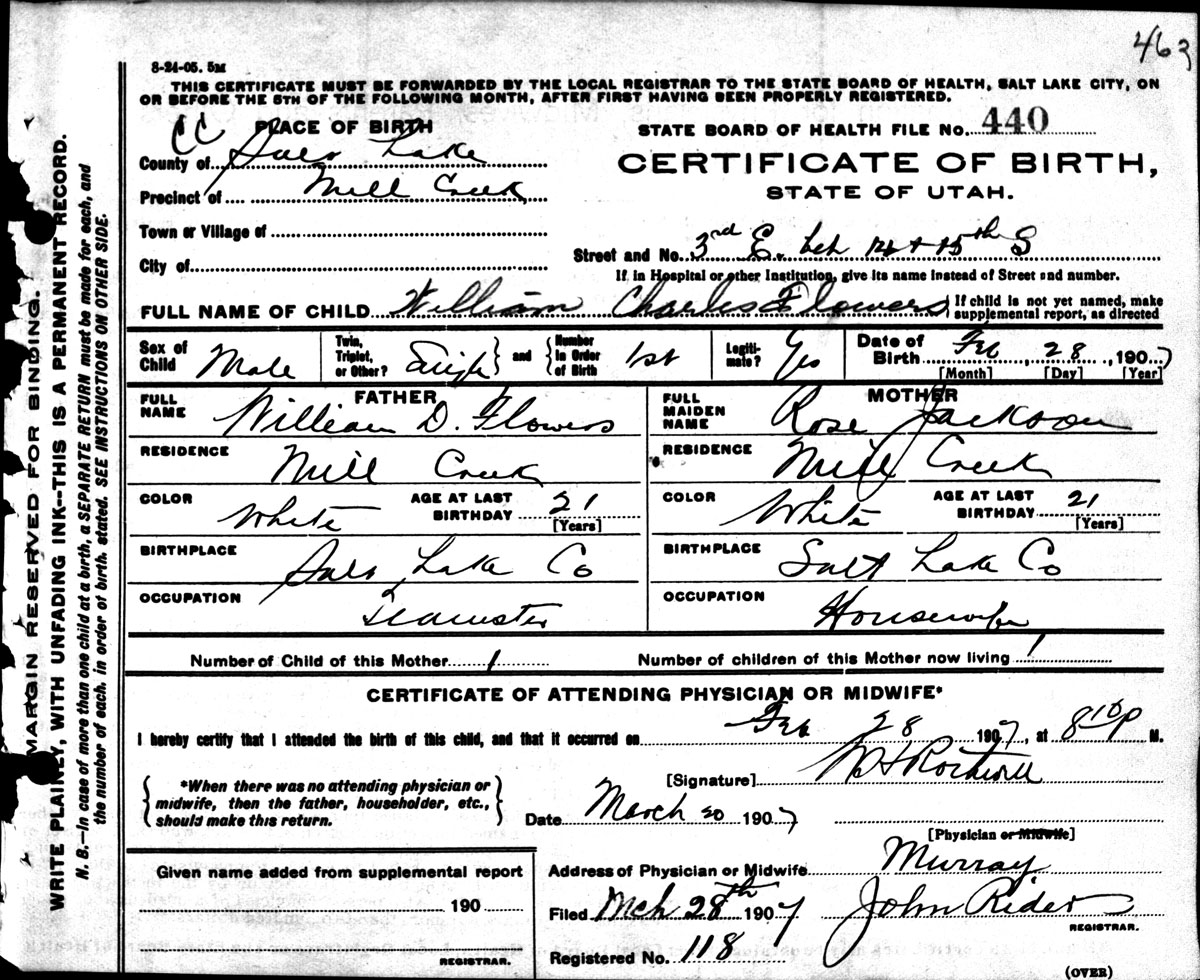 463
8-24-05. 5M
THIS CERTIFICATE MUST BE FORWARDED BY THE LOCAL REGISTRAR TO THE STATE BOARD OF HEALTH, SALT LAKE CITY, ON
OR BEFORE THE 5TH OF THE FOLLOWING MONTH, AFTER FIRST HAVING BEEN PROPERLY REGISTERED.
CC PLACE OF BIRTH
STATE BOARD OF HEALTH FILE No. 440
County of Salt Lake
CERTIFICATE OF BIRTH,
Precinct of Mill Creek
STATE OF UTAH.
Town or Village of
Street and No. 3rd E. bet 14 + 15th S
City of
If in Hospital or other Institution, give its name instead of Street and number.
FULL NAME OF CHILD William Charles Flowers If child is not yet named, make
supplemental report, as directed
Sex of Child Male Twin, Triplet, or Other? Single and Number in Order of Birth 1st Legiti-mate? Yes Date of Birth Feb 28, 1907
[Month] [Day] [Year]
FATHER MOTHER
FULL NAME William D. Flowers FULL MAIDEN NAME Rose Jackson
RESIDENCE Mill Creek RESIDENCE Mill Creek
COLOR White AGE AT LAST BIRTHDAY 21 [Years] COLOR White AGE AT LAST BIRTHDAY 21 [Years]
BIRTHPLACE Salt Lake Co BIRTHPLACE Salt Lake Co
OCCUPATION Teamster OCCUPATION Housewife
Number of Child of this Mother 1 Number of children of this Mother now living 1
CERTIFICATE OF ATTENDING PHYSICIAN OR MIDWIFE*
I hereby certify that I attended the birth of this child, and that it occurred on Feb 28 1907, at 8 10 P M.
[Signature]
*When there was no attending physician or
midwife, then the father, householder, etc.,
should make this return.
Date March 20 1907
[Physician or Midwife]
Address of Physician or Midwife Murray
Given name added from supplemental report
190
Filed Mch 28th 1907 John Rider
REGISTRAR.
Registered No. 118
REGISTRAR.
(OVER)
MARGIN RESERVED FOR BINDING.
WRITE PLAINLY, WITH UNFADING INK--THIS IS A PERMANENT RECORD.
N. B.—In case of more than one child at a birth, a SEPARATE RETURN must be made for each, and
the number of each, in order of birth, stated. SEE INSTRUCTIONS ON OTHER SIDE.